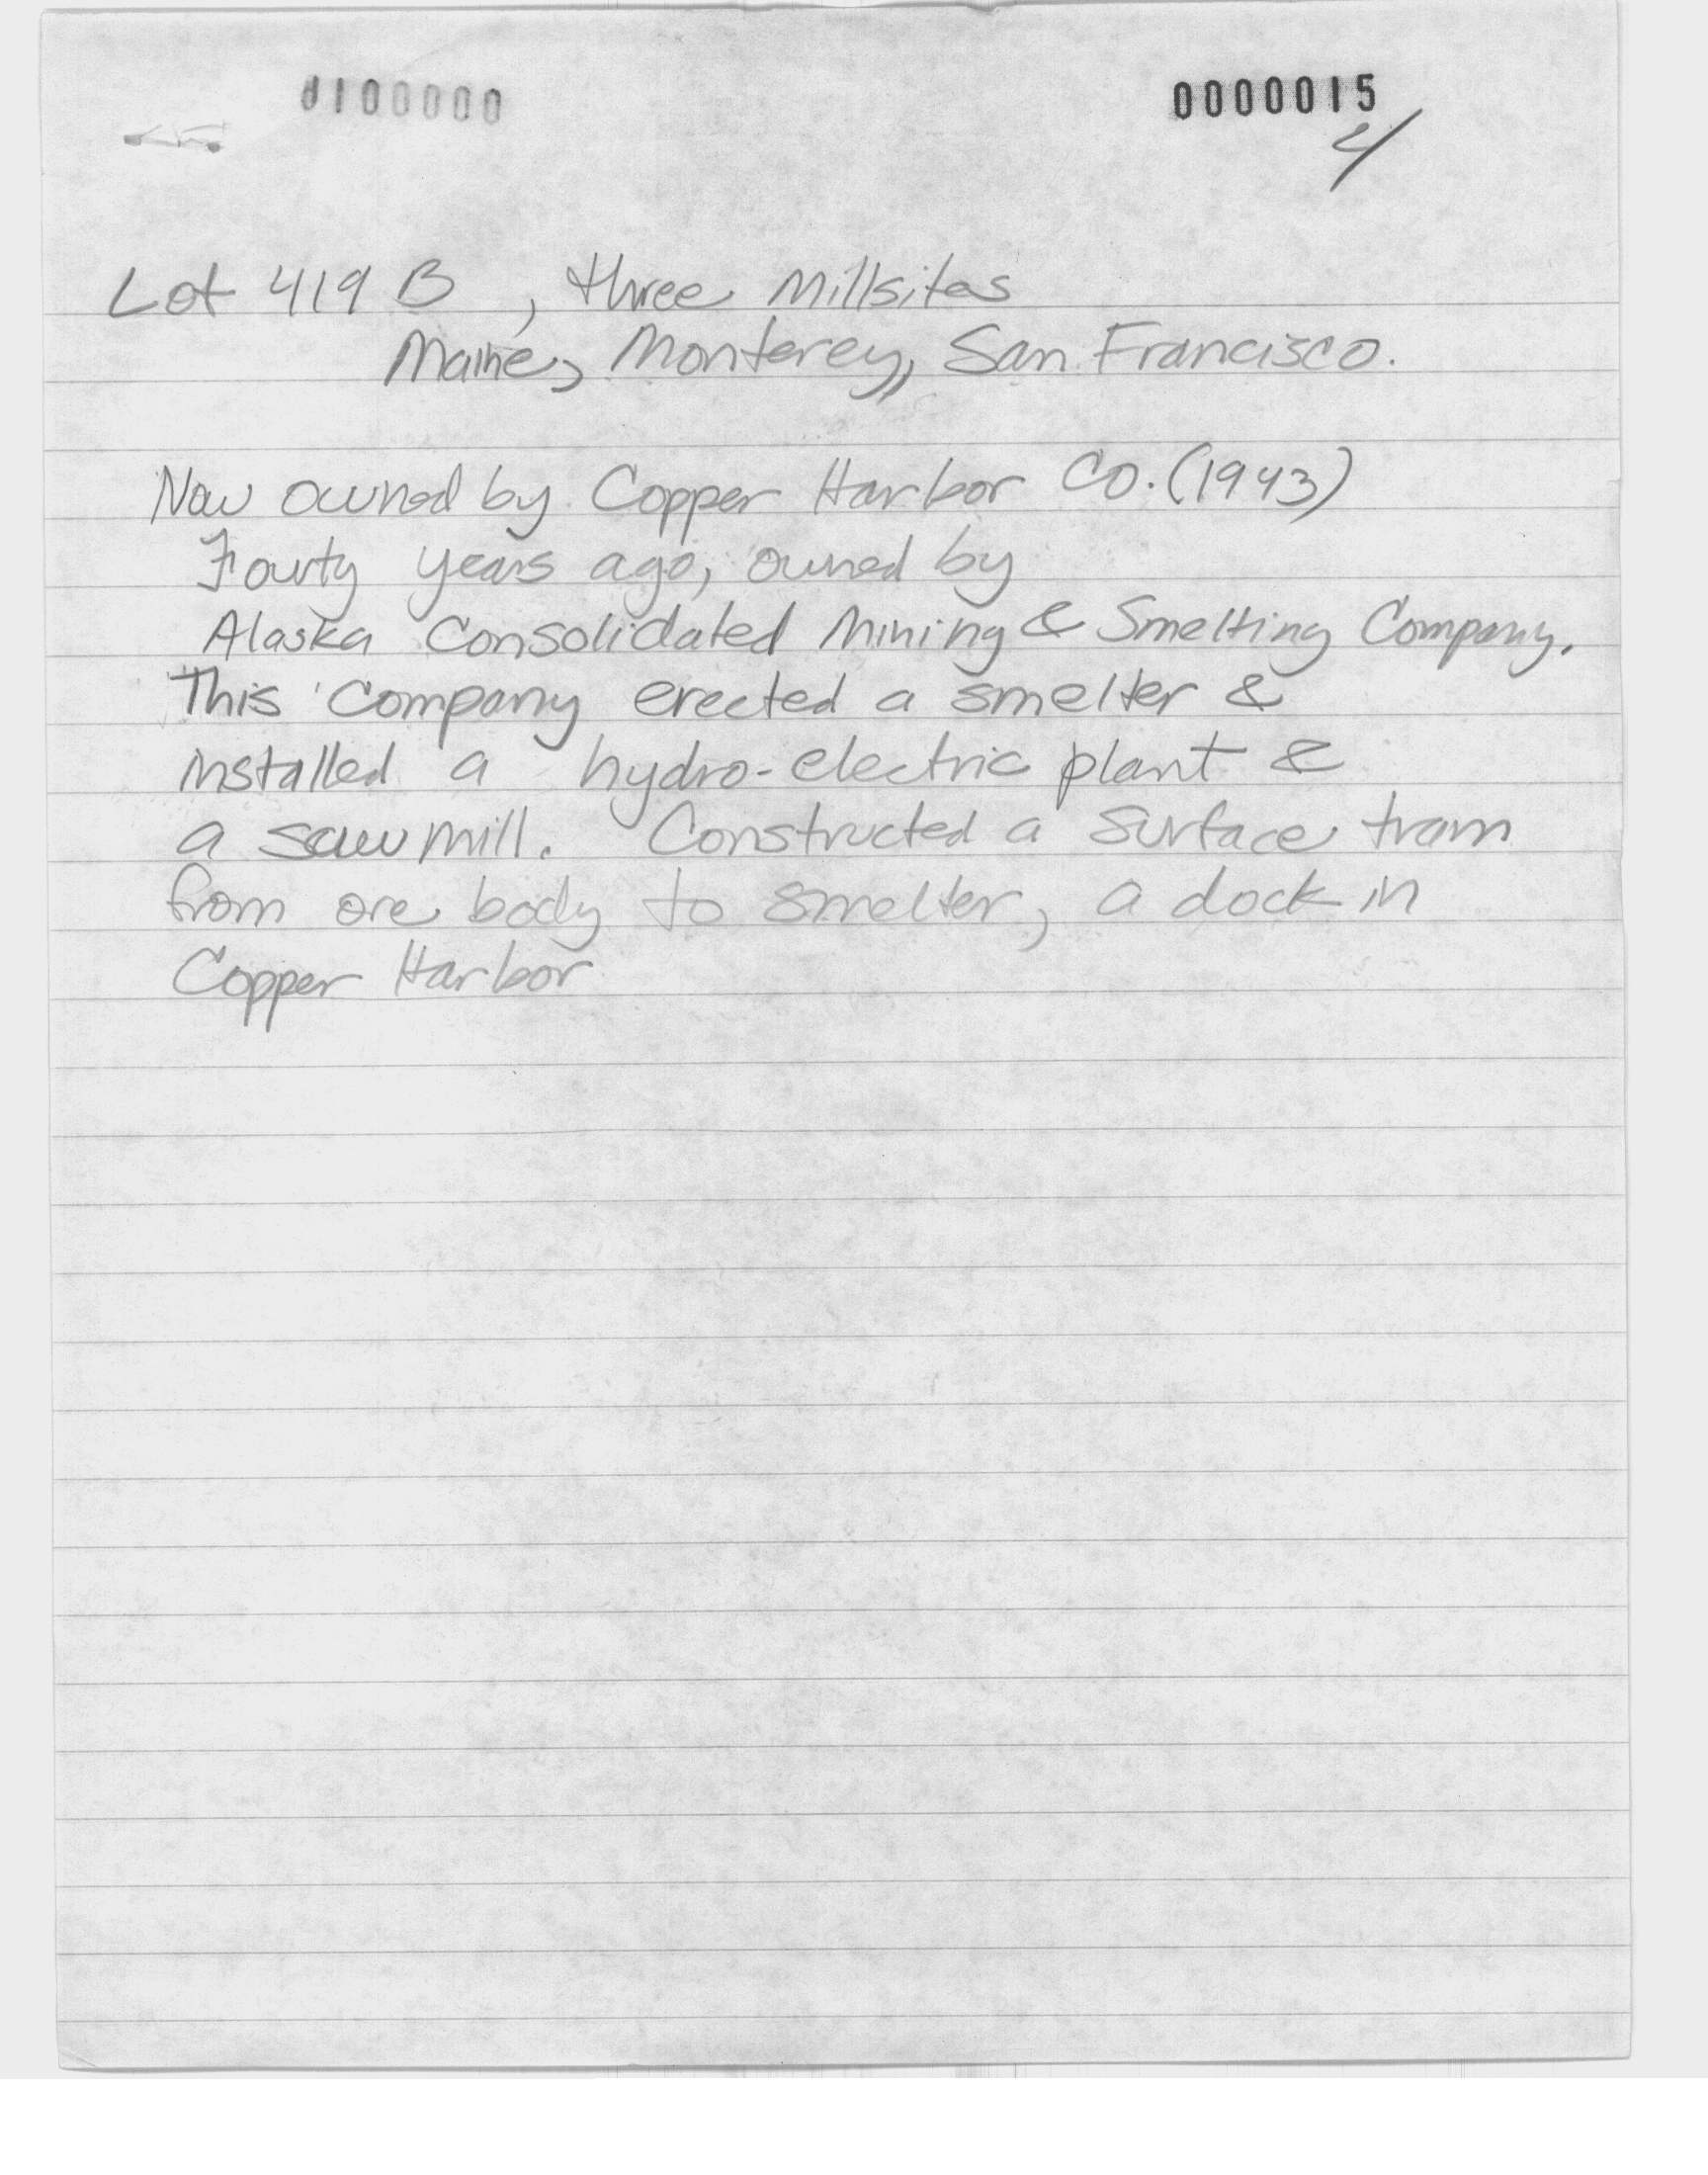 0000015
Lot 419 B , three Millsites
Maine, Monterey, San Francisco.
Now owned by Copper Harbor Co. (1943)
Fourty years ago, owned by
Alaska Consolidated Mining & Smelting Company.
This Company erected a smelter &
installed a hydro-electric plant &
a saw mill. Constructed a surface tram
from ore body to smelter, a dock in
Copper Harbor